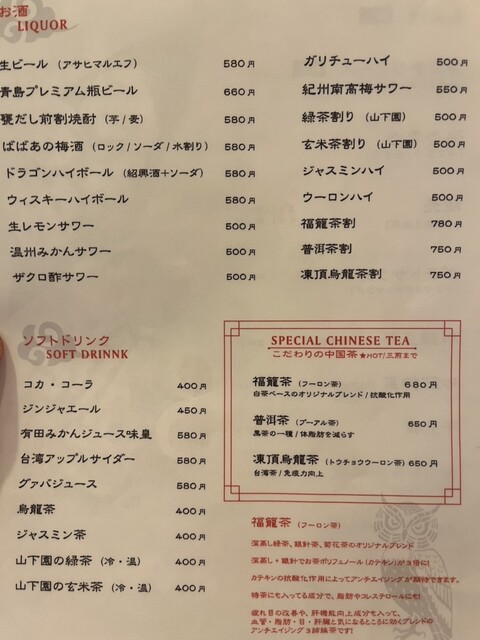 お酒
LIQUOR
生ビール（アサヒマルエフ） 580円
青島プレミアム瓶ビール 660円
甕だし前割焼酎（芋/麦） 580円
ばばあの梅酒（ロック/ソーダ/水割り） 580円
ドラゴンハイボール（紹興酒+ソーダ） 580円
ウィスキーハイボール 580円
生レモンサワー 500円
温州みかんサワー 500円
ザクロ酢サワー 500円
ガリチューハイ 500円
紀州南高梅サワー 550円
緑茶割り（山下園） 500円
玄米茶割り（山下園） 500円
ジャスミンハイ 500円
ウーロンハイ 500円
福龍茶割 780円
普洱茶割 750円
凍頂烏龍茶割 750円
ソフトドリンク
SOFT DRINNK
コカ・コーラ 400円
ジンジャエール 450円
有田みかんジュース味皇 580円
台湾アップルサイダー 580円
グァバジュース 580円
烏龍茶 400円
ジャスミン茶 400円
山下園の緑茶（冷・温） 400円
山下園の玄米茶（冷・温） 400円
SPECIAL CHINESE TEA
こだわりの中国茶 ★HOT/三煎まで
福龍茶（フーロン茶） 680円
白茶ベースのオリジナルブレンド/抗酸化作用
普洱茶（プーアル茶） 650円
黒茶の一種/体脂肪を減らす
凍頂烏龍茶（トウチョウウーロン茶）650円
台湾茶/免疫力向上
福龍茶（フーロン茶）
深蒸し緑茶、銀針茶、菊花茶のオリジナルブレンド
深蒸し+銀針でお茶ポリフェノール（カテキン）が3倍に!
カテキンの抗酸化作用によってアンチエイジングが期待できます。
特茶にも入ってる成分で、脂肪やコレステロールにも!
疲れ目の改善や、肝機能向上成分も入って、
血管・脂肪・目・肝臓と気になるところに効くブレンドの
アンチエイジング3姉妹茶です!